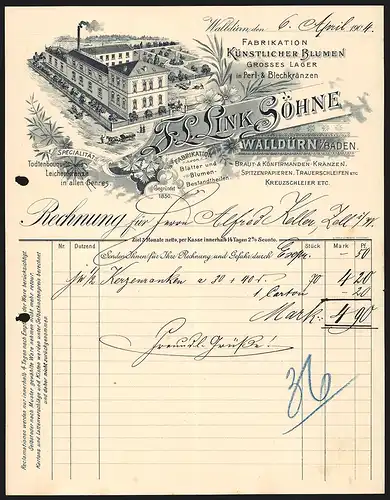 Walldürn, den 6. April 1904.
FABRIKATION
KÜNSTLICHER BLUMEN
GROSSES LAGER
in Perl- & Blechkränzen
F.L. LINK SÖHNE
WALLDÜRN i/BADEN.
SPECIALITÄT
Todtenbouquets
Leichenkränze
in allen Genres.
FABRIKATION
Blätter und
Blumen-
Bestandtheilen
Gegründet
1850.
BRAUT- & KONFIRMANDEN-KRÄNZEN,
SPITZENPAPIEREN, TRAUERSCHLEIFEN etc
KREUZSCHLEIER ETC.
Rechnung für Herrn Alfred Keller, Zell i/W.
Ziel 3 Monate netto, per Kasse innerhalb 14 Tagen 2% Sconto.
Nr. Dutzend Senden Ihnen für Ihre Rechnung und Gefahr durch Stück Mark Pf.
50
1/2 Kerzenranken a 30 + 40 70 4 20
1 Carton 20
Mark: 4 90
Freundl. Grüße!
36
Reclamationen werden nur innerhalb 4 Tagen nach Empfang der Ware berücksichtigt.
Selbst oder nach Muster gewählte Ware nehmen nicht mehr retour.
Kartons und Lattenverschläge und Kisten werden unter Selbstkostenpreis berechnet
und daher nicht zurückgenommen.